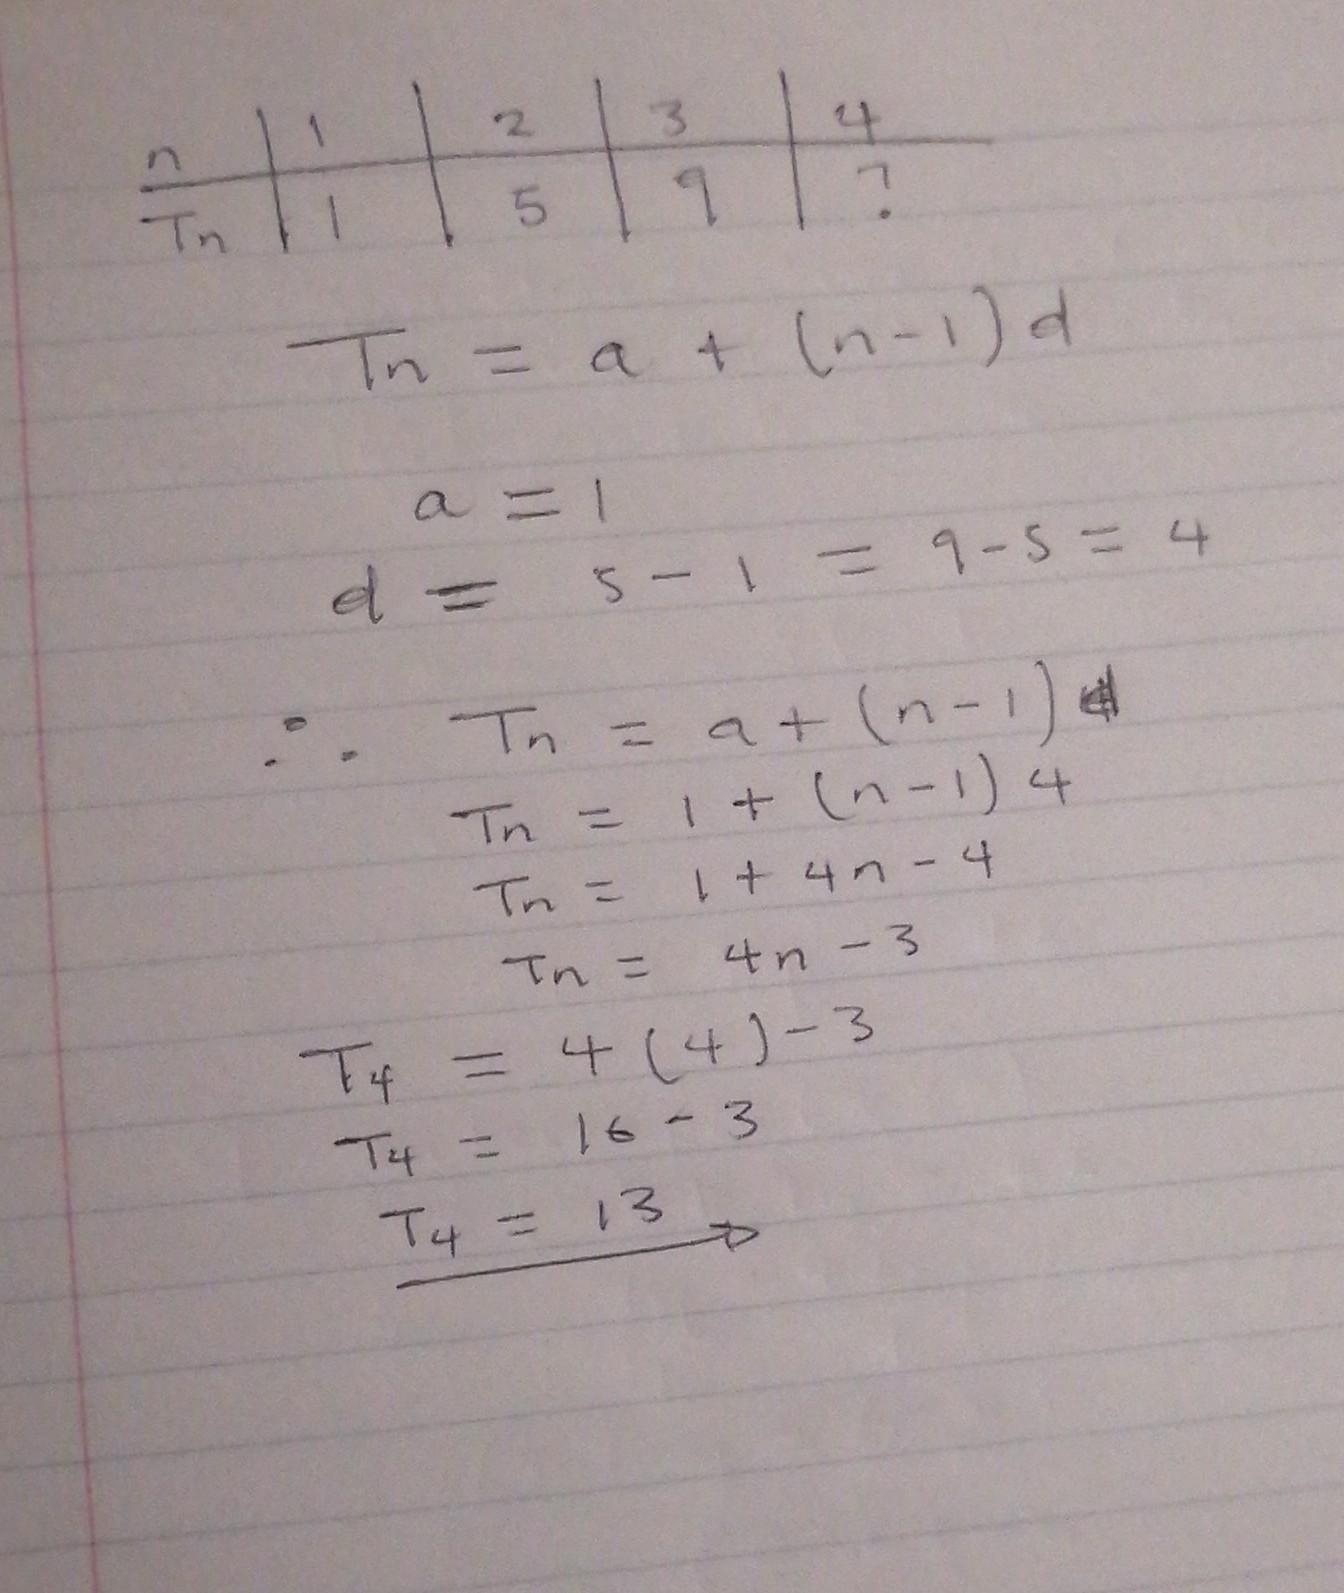 n | 1 | 2 | 3 | 4
Tn | 1 | 5 | 9 | ?
Tn = a + (n-1) d
a = 1
d = 5 - 1 = 9 - 5 = 4
∴ Tn = a + (n-1) d
Tn = 1 + (n-1) 4
Tn = 1 + 4n - 4
Tn = 4n - 3
T4 = 4 (4) - 3
T4 = 16 - 3
T4 = 13